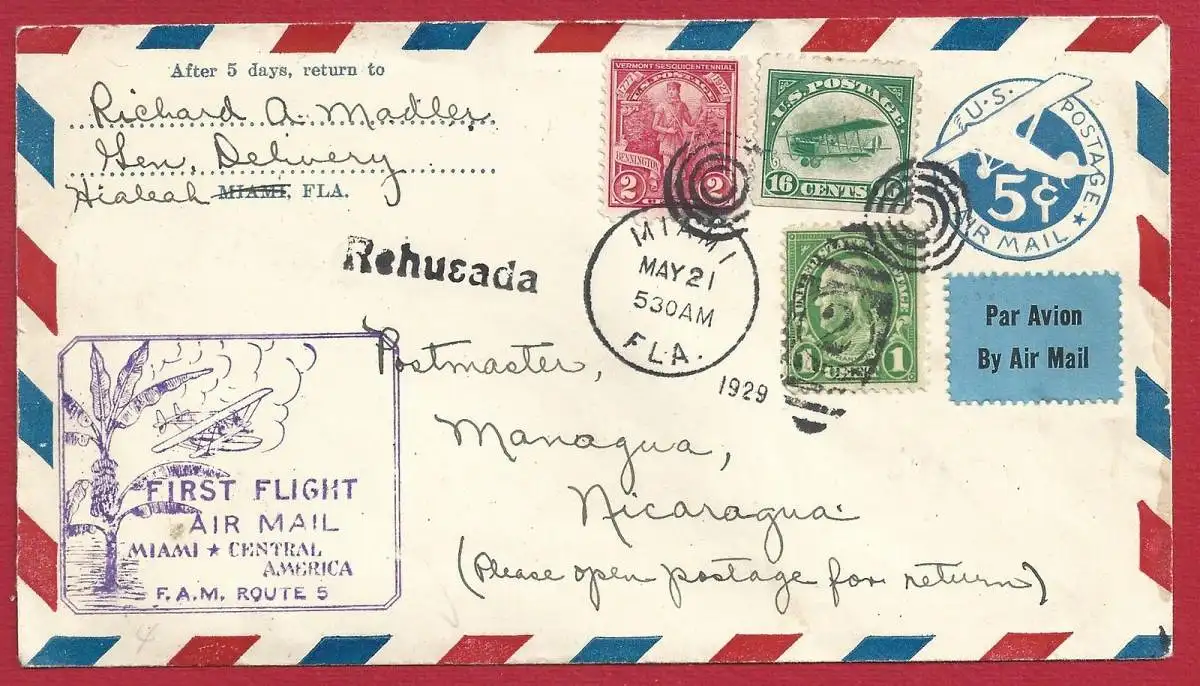 After 5 days, return to
Richard A. Madler
Gen. Delivery
Hialeah MIAMI, FLA.
VERMONT SESQUICENTENNIAL
U.S. POSTAGE
BENNINGTON
2 2
U.S. POSTAGE.
16 CENTS
U.S. POSTAGE
5¢
AIR MAIL
Rehusada
MIAMI
MAY 21
530AM
FLA.
1929
1 CENT 1
Par Avion
By Air Mail
Postmaster,
Managua,
Nicaragua
(Please open postage for return)
FIRST FLIGHT
AIR MAIL
MIAMI ★ CENTRAL
AMERICA
F.A.M. ROUTE 5